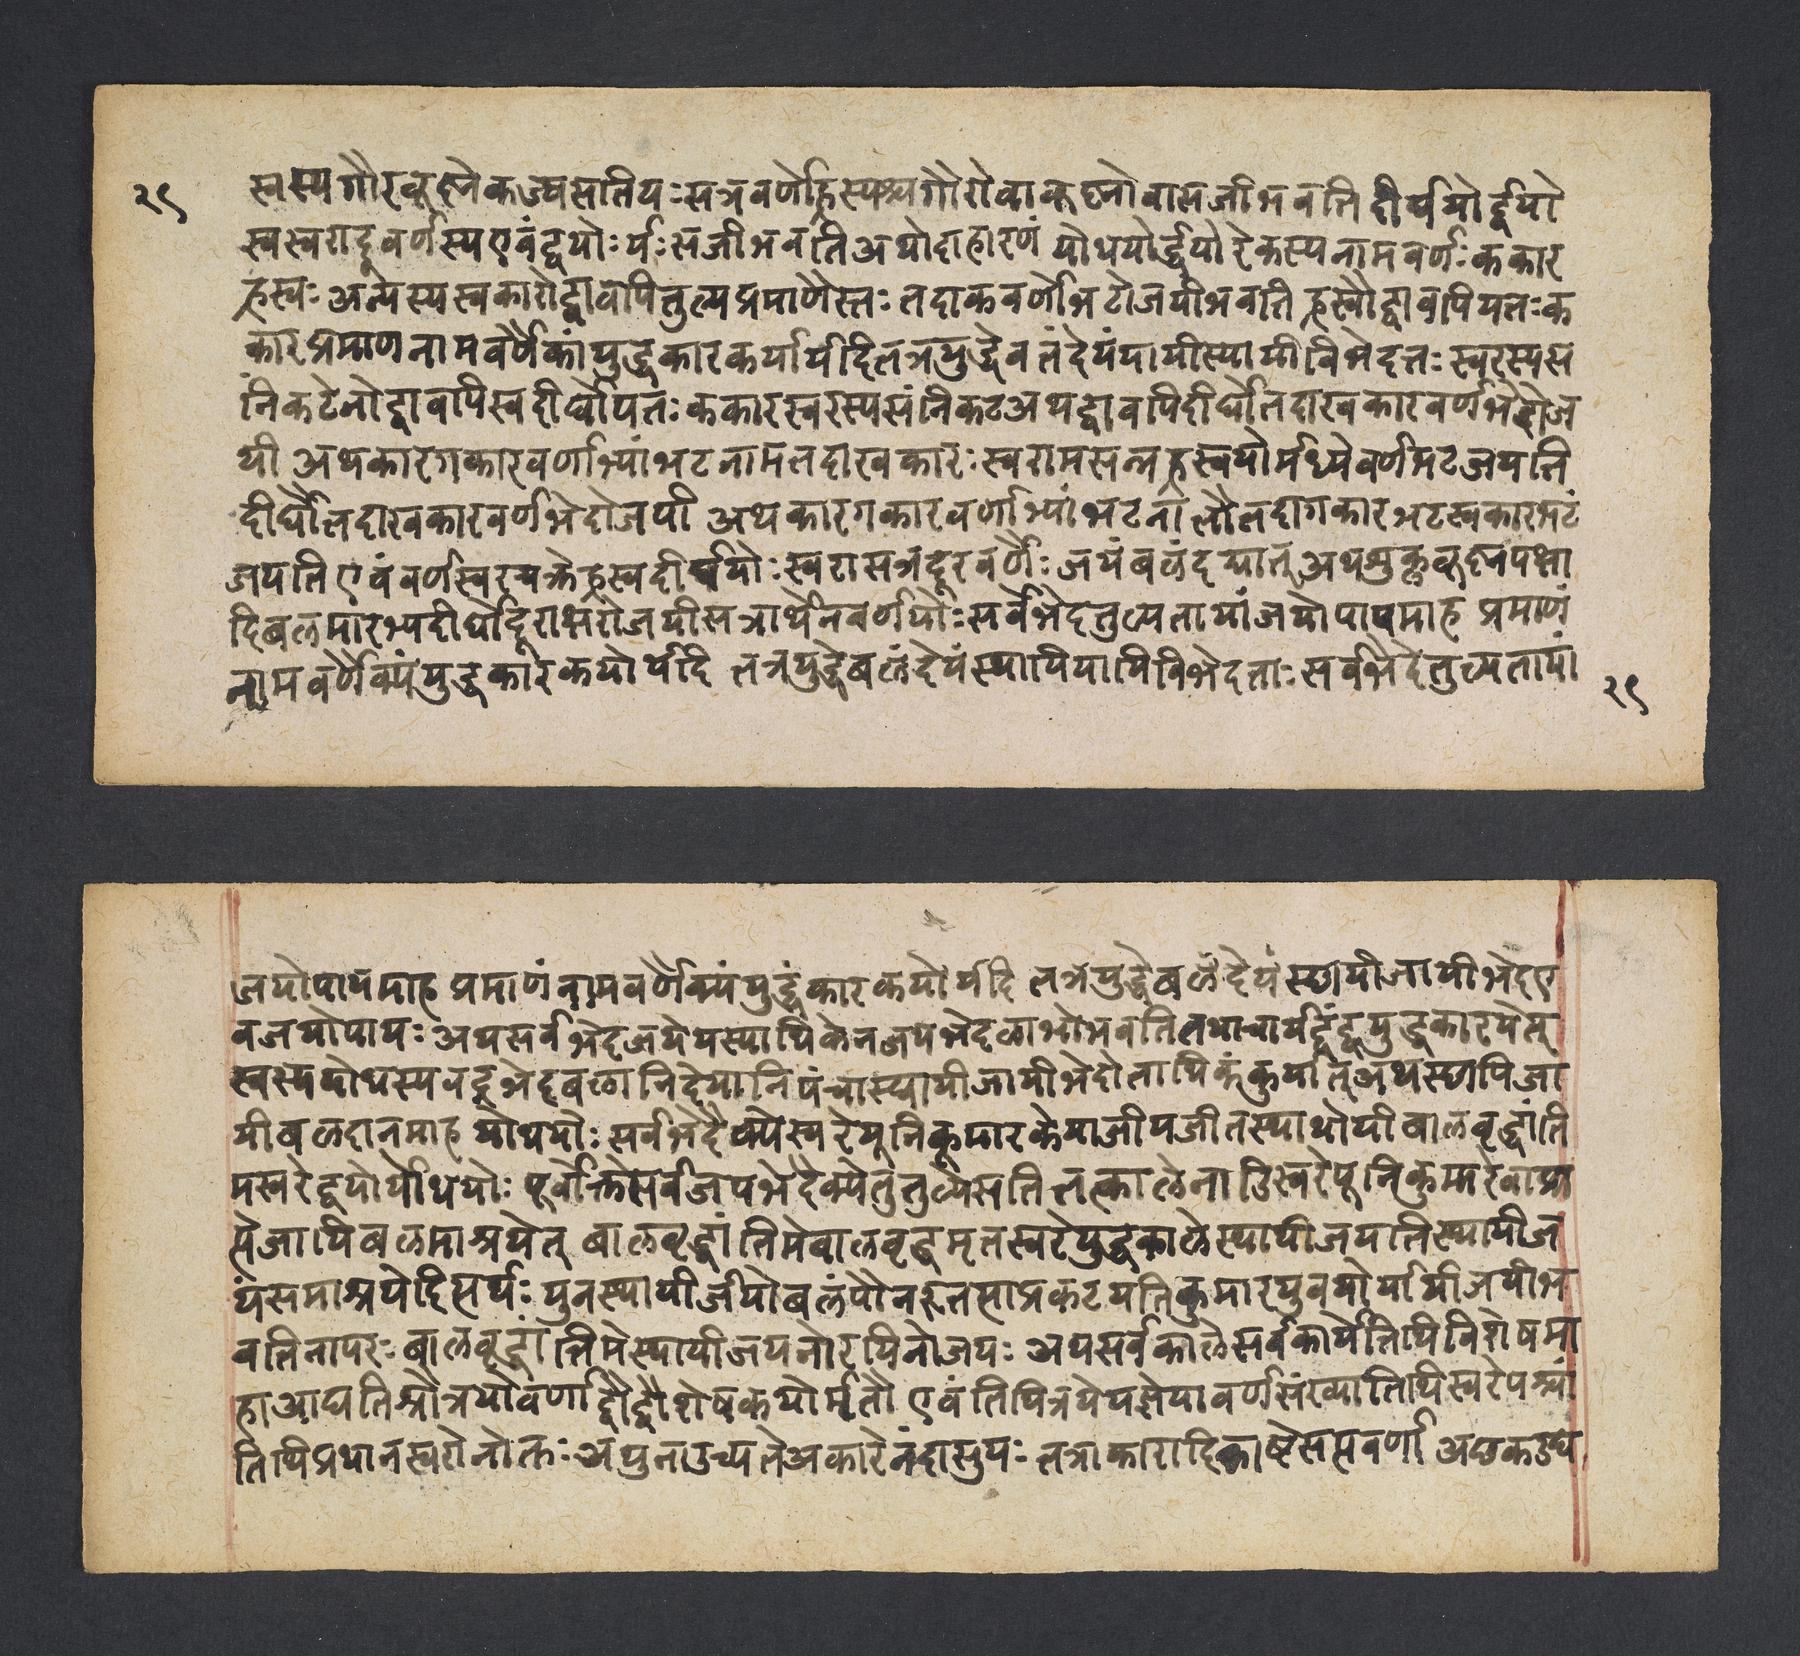 २९
स्वस्य गौरकृष्णेकज्यसातियः सत्रवर्णेह्रिस्पश्च गौरो वा कृष्णो वा सजीभवति दीर्घयोर्द्वयो
स्वस्वरादूवर्णस्य एवं द्वयोः र्यः सजीभवति अथोदाहारणं योधयोर्द्वयोरेकस्य नामवर्णः ककार
ह्रस्वः अन्यस्य स्वकारोद्वावपि तुल्यप्रमाणैस्तः तदाकवर्णभिटोजयीभवति ह्रस्वौद्वावपि यतः क
कारप्रमाण नामवर्णैकां युद्धकारकर्यार्यदि तत्रयुद्धेवलंदेयंपायीस्यायी विभेदतः स्वरस्यस
निकटेनोद्वावपि स्वदीर्घौयतः ककारस्वरस्यसंनिकट अथद्वावपिदीर्घौतदाखकारवर्णभेदोज
यी अथकारगकारवर्णाभ्यां भटनामतदाखकारः स्वरामसन्न ह्रस्वयोर्मध्येवर्णभटजयति
दीर्घौतदाखकारवर्णभेदोजयी अथकारगकारवर्णाभ्यां भटनां लौतदागकारभटखकारभटं
जयति एवंवर्णस्वरचक्रेह्रस्वदीर्घयोः स्वरासन्नदूरवर्णैः जयंबलंदद्यात् अथशुक्लकृष्णपक्षा
दिबलमारभ्यदीर्घोदूराक्षरोजयीसत्रार्थेनवर्णयोः सर्वभेदतुल्यतायां जयोपायमाह प्रमाणं
नामवर्णैक्यं युद्धकारकयोर्यदि तत्रयुद्धेबलंदेयंस्थायियायिविभेदताः सर्वभेदेतुल्यतायां
२९
जयोपायमाह प्रमाणं नामवर्णैक्यं युद्धंकारकयोर्यदि तत्रेयुद्धेबलंदेयं स्थायीजायीभेदए
वजयोपायः अथसर्वभेदजयेयस्याधिकेनजयभेदलाभोभवति तथाचार्यद्वंद्वयुद्धकारयेत्
स्वस्ययोधस्यवद्भेदबलानिदेयानि पंचास्थायीजायीभेदोताधिकंकुर्यात् अथस्थायिजा
यीबलदानमाह योधयोः सर्वभेदैक्येस्वरेयूनिकुमारकेयाजीयजीतस्याथोयी बालवृद्धांति
मस्वरेद्वयोर्योधयोः पूर्वोक्तिसर्वजयभेदैक्येतुतुल्येसति तत्कालेनाडिस्वरेपूनिकुमारेवाप्रा
प्तेजायिबलमाश्रयेत् बालवृद्धांतिमेबालवृद्धमृतस्वरेयुद्धकालेस्थायीजयतिस्थायीज
यंसमाश्रयेदिसर्थः पुनस्थायीजीयोबलंपौनरुतसाप्रकटयति कुमारयुवयोर्यायीजयीभ
वतिनापरः बालवृद्धांतिमेस्थायीजयनोरयिनोजयः अथसर्वकालेसर्वकार्येतिथिविशेषमा
हाआद्यतिश्रौत्रयोवर्णाद्वौद्वौशेषकयोर्मृतौ एवंतिथित्रयेयज्ञेयावर्णसंख्यातिथिस्वरेपश्यां
तिथिप्रधानस्वरोनोक्तः अधुनाउच्यतेअकारेनंदासुयः तत्राकारादिकाष्टेसप्तवर्णा अछकडधे